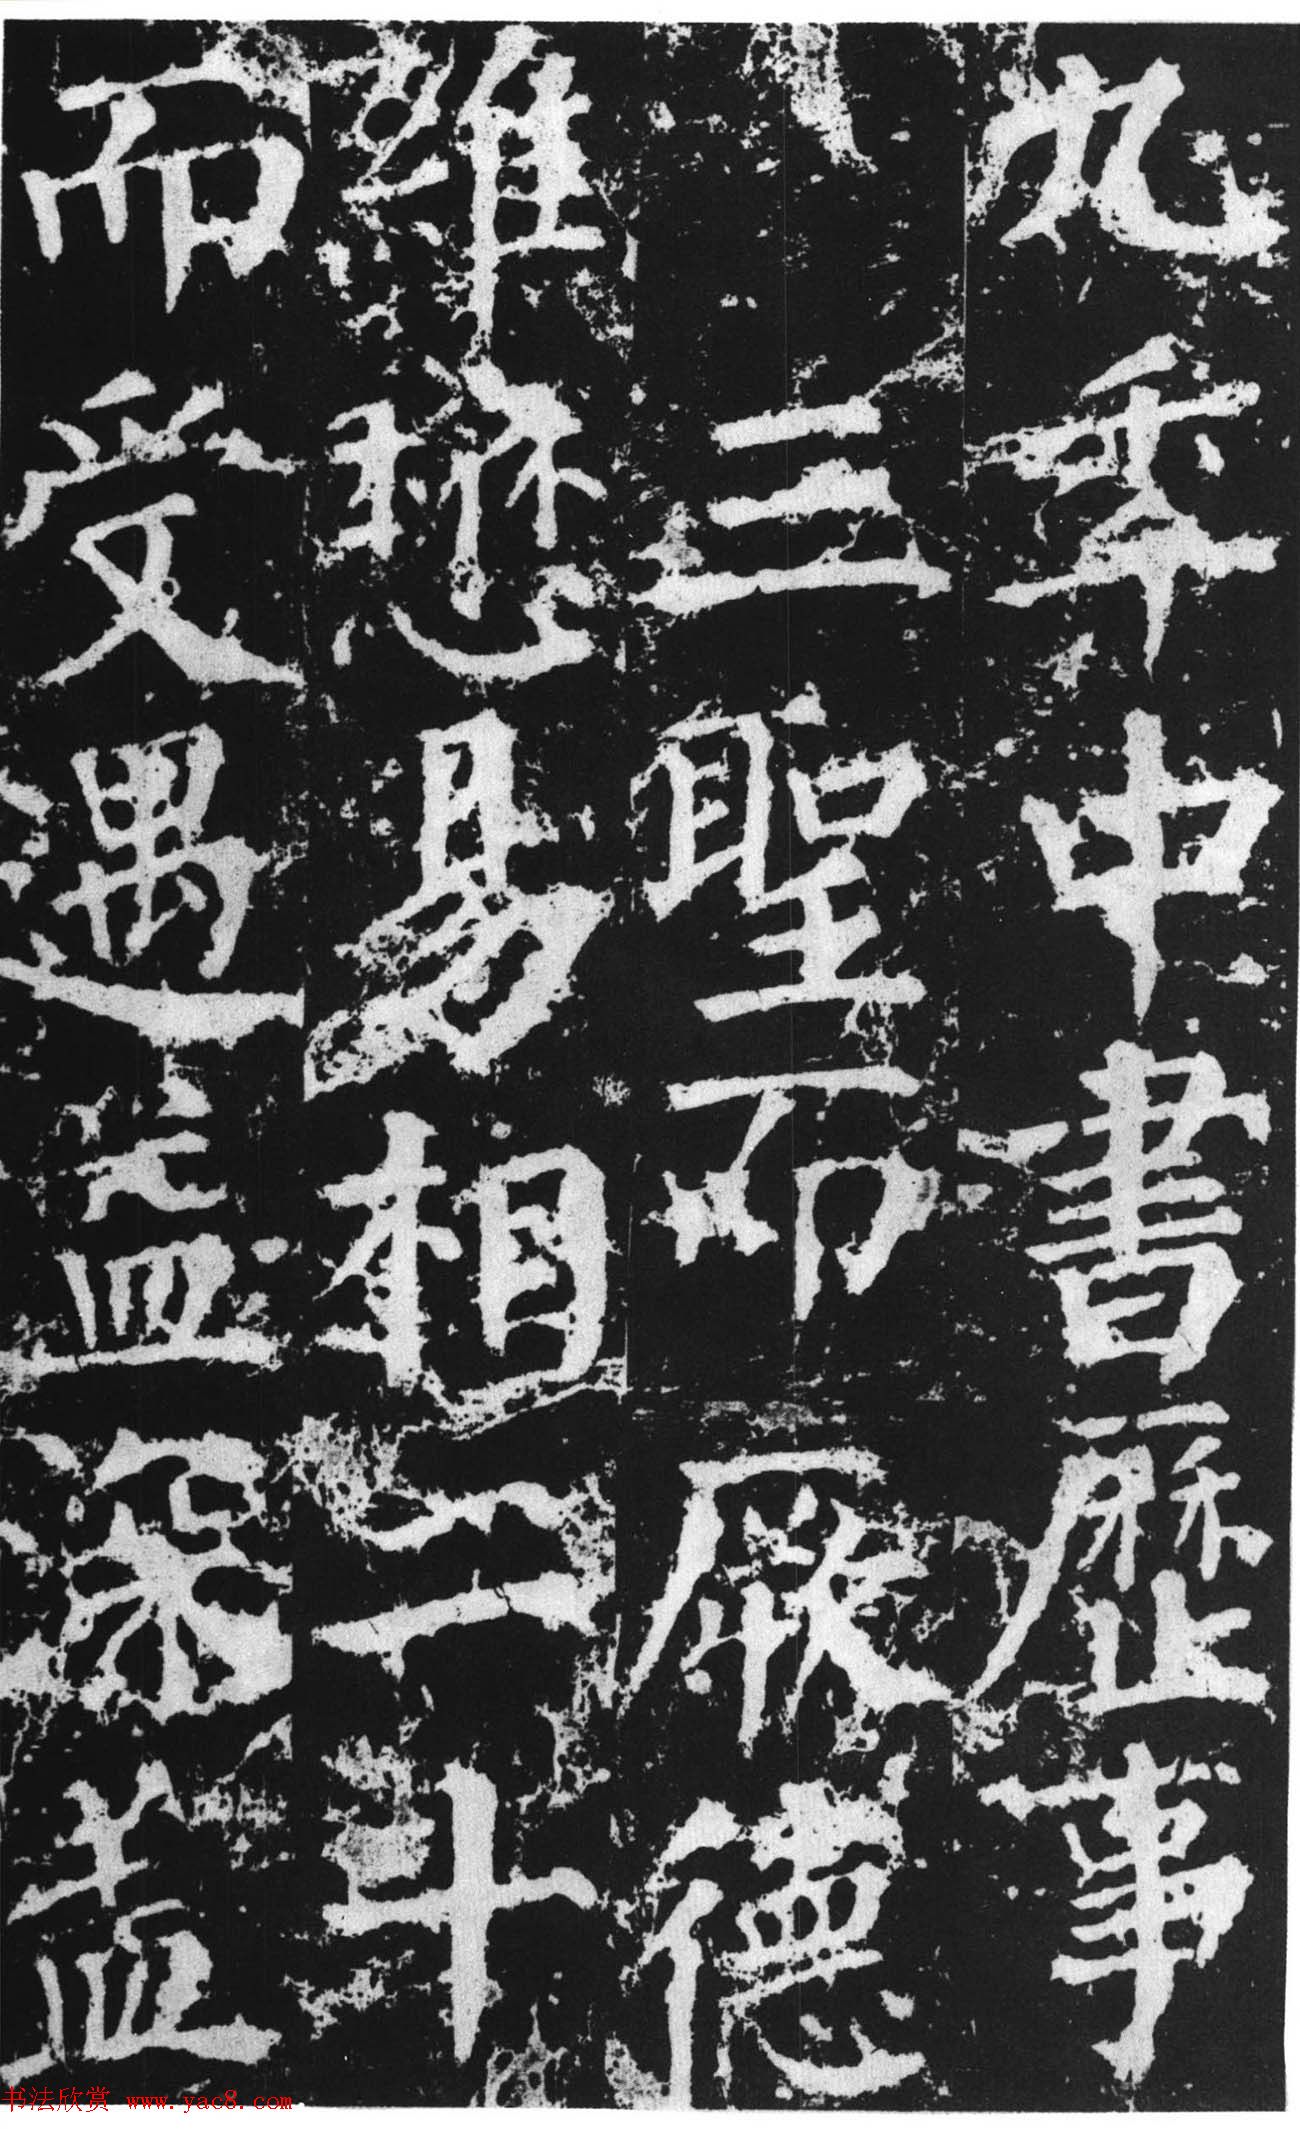 九年中書歷事
三聖而厥德
維懋易相二十
而受遇益深蓋
书法欣赏 www.yac8.com